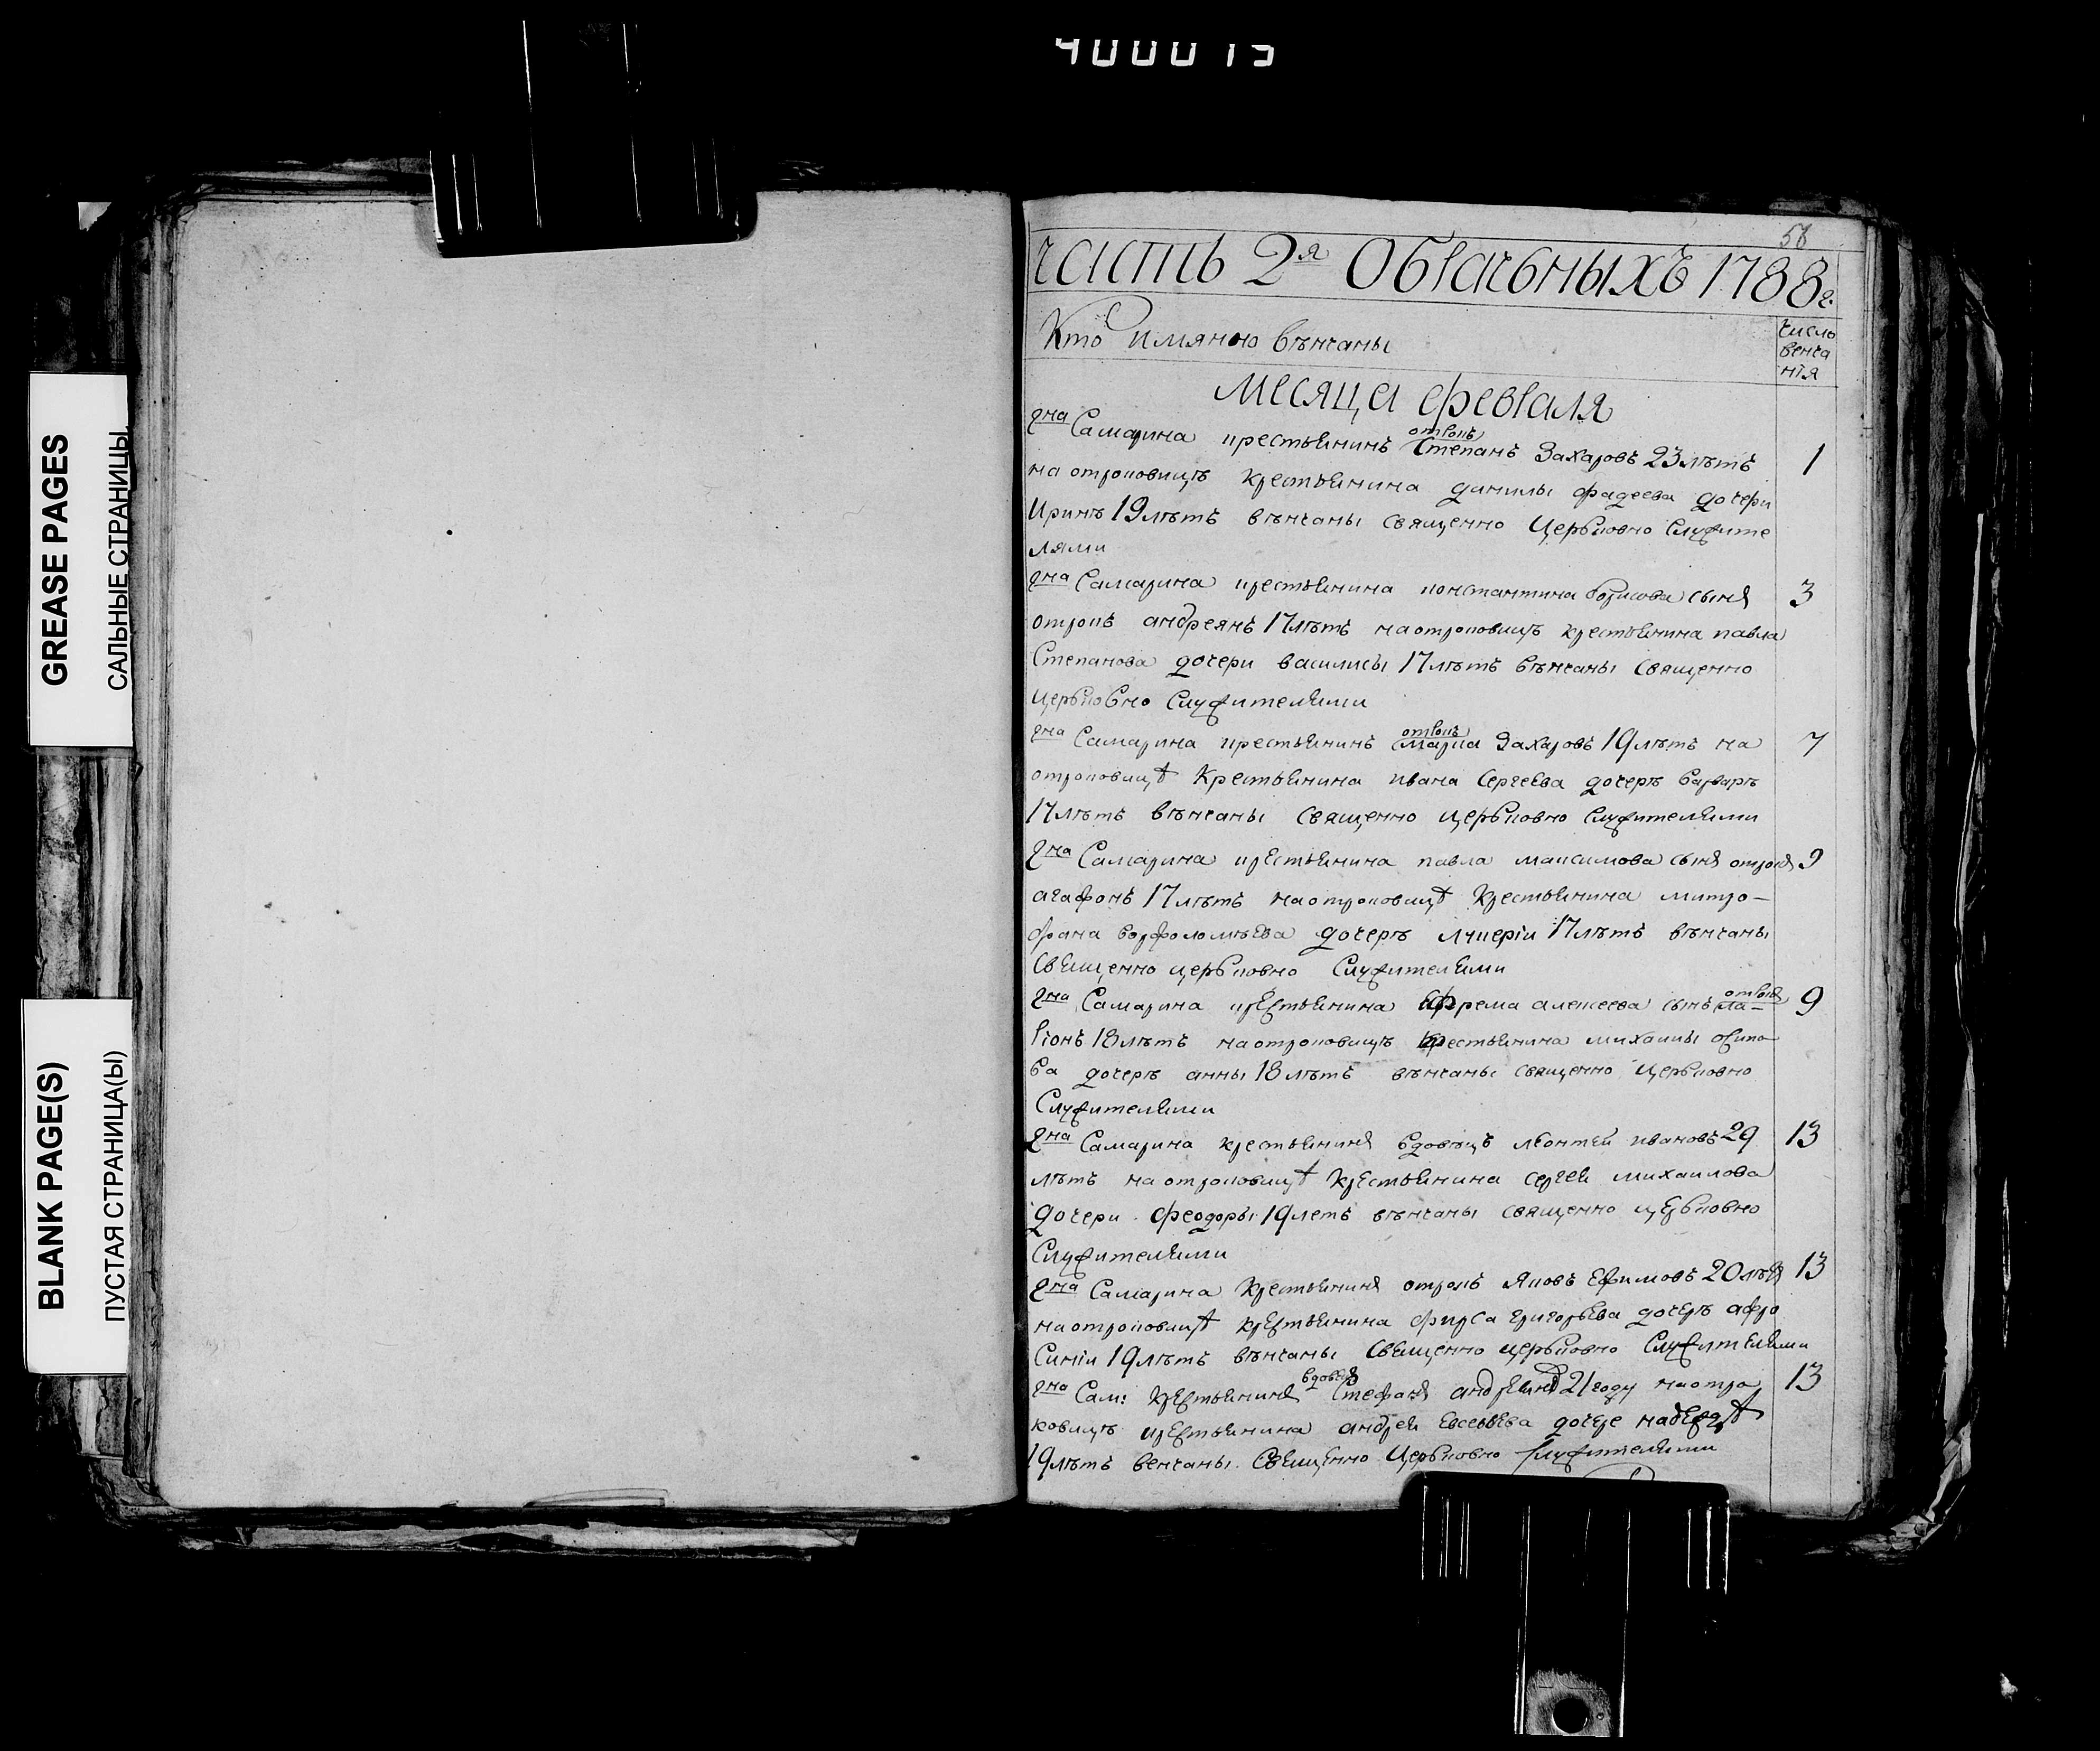 400015
GREASE PAGES
САЛЬНЫЕ СТРАНИЦЫ
BLANK PAGE(S)
ПУСТАЯ СТРАНИЦА(Ы)
58
часть 2я Обрачьныхъ 1788 г.
Кто имянно вѣнчаны
число
венча
нія
месяца февраля
гна Самарина крестьянинъ отрокъ Степанъ Захаровъ 23 лѣтъ 1
на отроковицѣ крестьянина данилы фадеева дочери
Иринѣ 19 лѣтъ вѣнчаны священно Церьковно Служите
лями
гна Самарина крестьянина константина борисова сынъ 3
отрокъ андреянъ 17 лѣтъ на отроковицѣ крестьянина павла
Степанова дочери василисы 17 лѣтъ вѣнчаны священно
церьковно Служителями
гна Самарина крестьянинъ отрокъ Захаровъ 19 лѣтъ на 7
отроковицѣ крестьянина ивана Сергеева дочерѣ варварѣ
17 лѣтъ вѣнчаны священно церьковно Служителями
гна Самарина крестьянина павла максимова сынъ отрокъ 9
агафонъ 17 лѣтъ на отроковицѣ крестьянина митро-
фана ворфоломѣева дочерѣ лукеріи 17 лѣтъ вѣнчаны
священно церьковно Служителями
гна Самарина крестьянина ефрема алексеева сынъ отрокъ ла- 9
ріонъ 18 лѣтъ на отроковицѣ крестьянина михаилы осипо
ва дочерѣ анны 18 лѣтъ вѣнчаны священно Церьковно
Служителями
гна Самарина крестьянинъ вдовецъ леонтей ивановъ 29 13
лѣтъ на отроковицѣ крестьянина сергея михаилова
дочери феодоры 19 летъ вѣнчаны священно церьковно
Служителями
гна Самарина крестьянинъ отрокъ яковъ ефимовъ 20 лѣтъ 13
на отроковицѣ крестьянина фирса григорьева дочерѣ афро
синіи 19 лѣтъ вѣнчаны священно церьковно Служителями
гна Сам: крестьянинъ вдовецъ Стефанъ андреянъ 21 году на отро 13
ковицѣ крестьянина андрея евсевьева дочере
19 лѣтъ венчаны священно Церьковно служителями